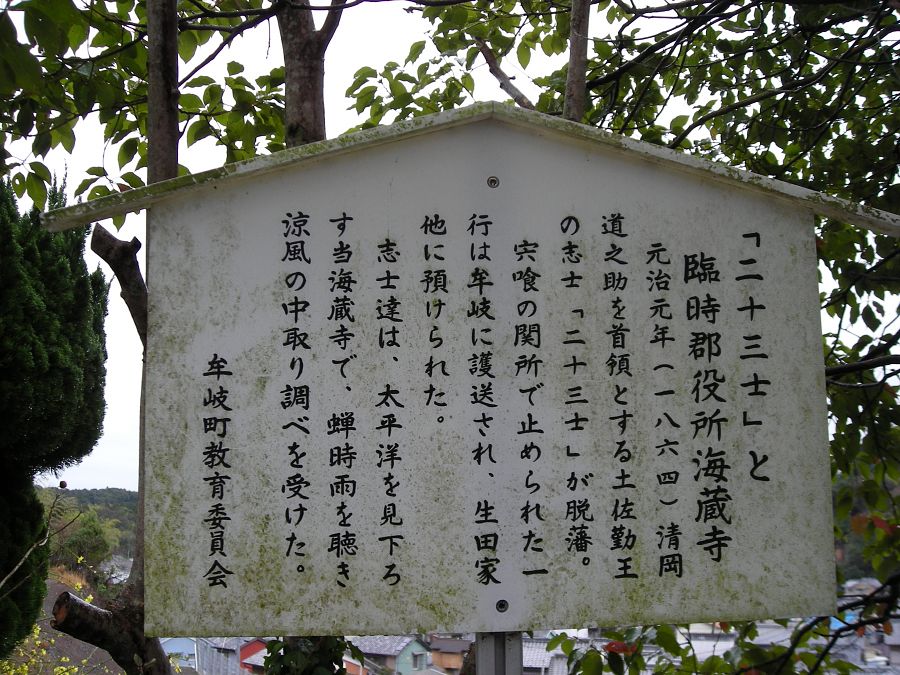 「二十三士」と
臨時郡役所海蔵寺
元治元年(一八六四)清岡
道之助を首領とする土佐勤王
の志士「二十三士」が脱藩。
宍喰の関所で止められた一
行は牟岐に護送され、生田家
他に預けられた。
志士達は、太平洋を見下ろ
す当海蔵寺で、蝉時雨を聴き
涼風の中取り調べを受けた。
牟岐町教育委員会